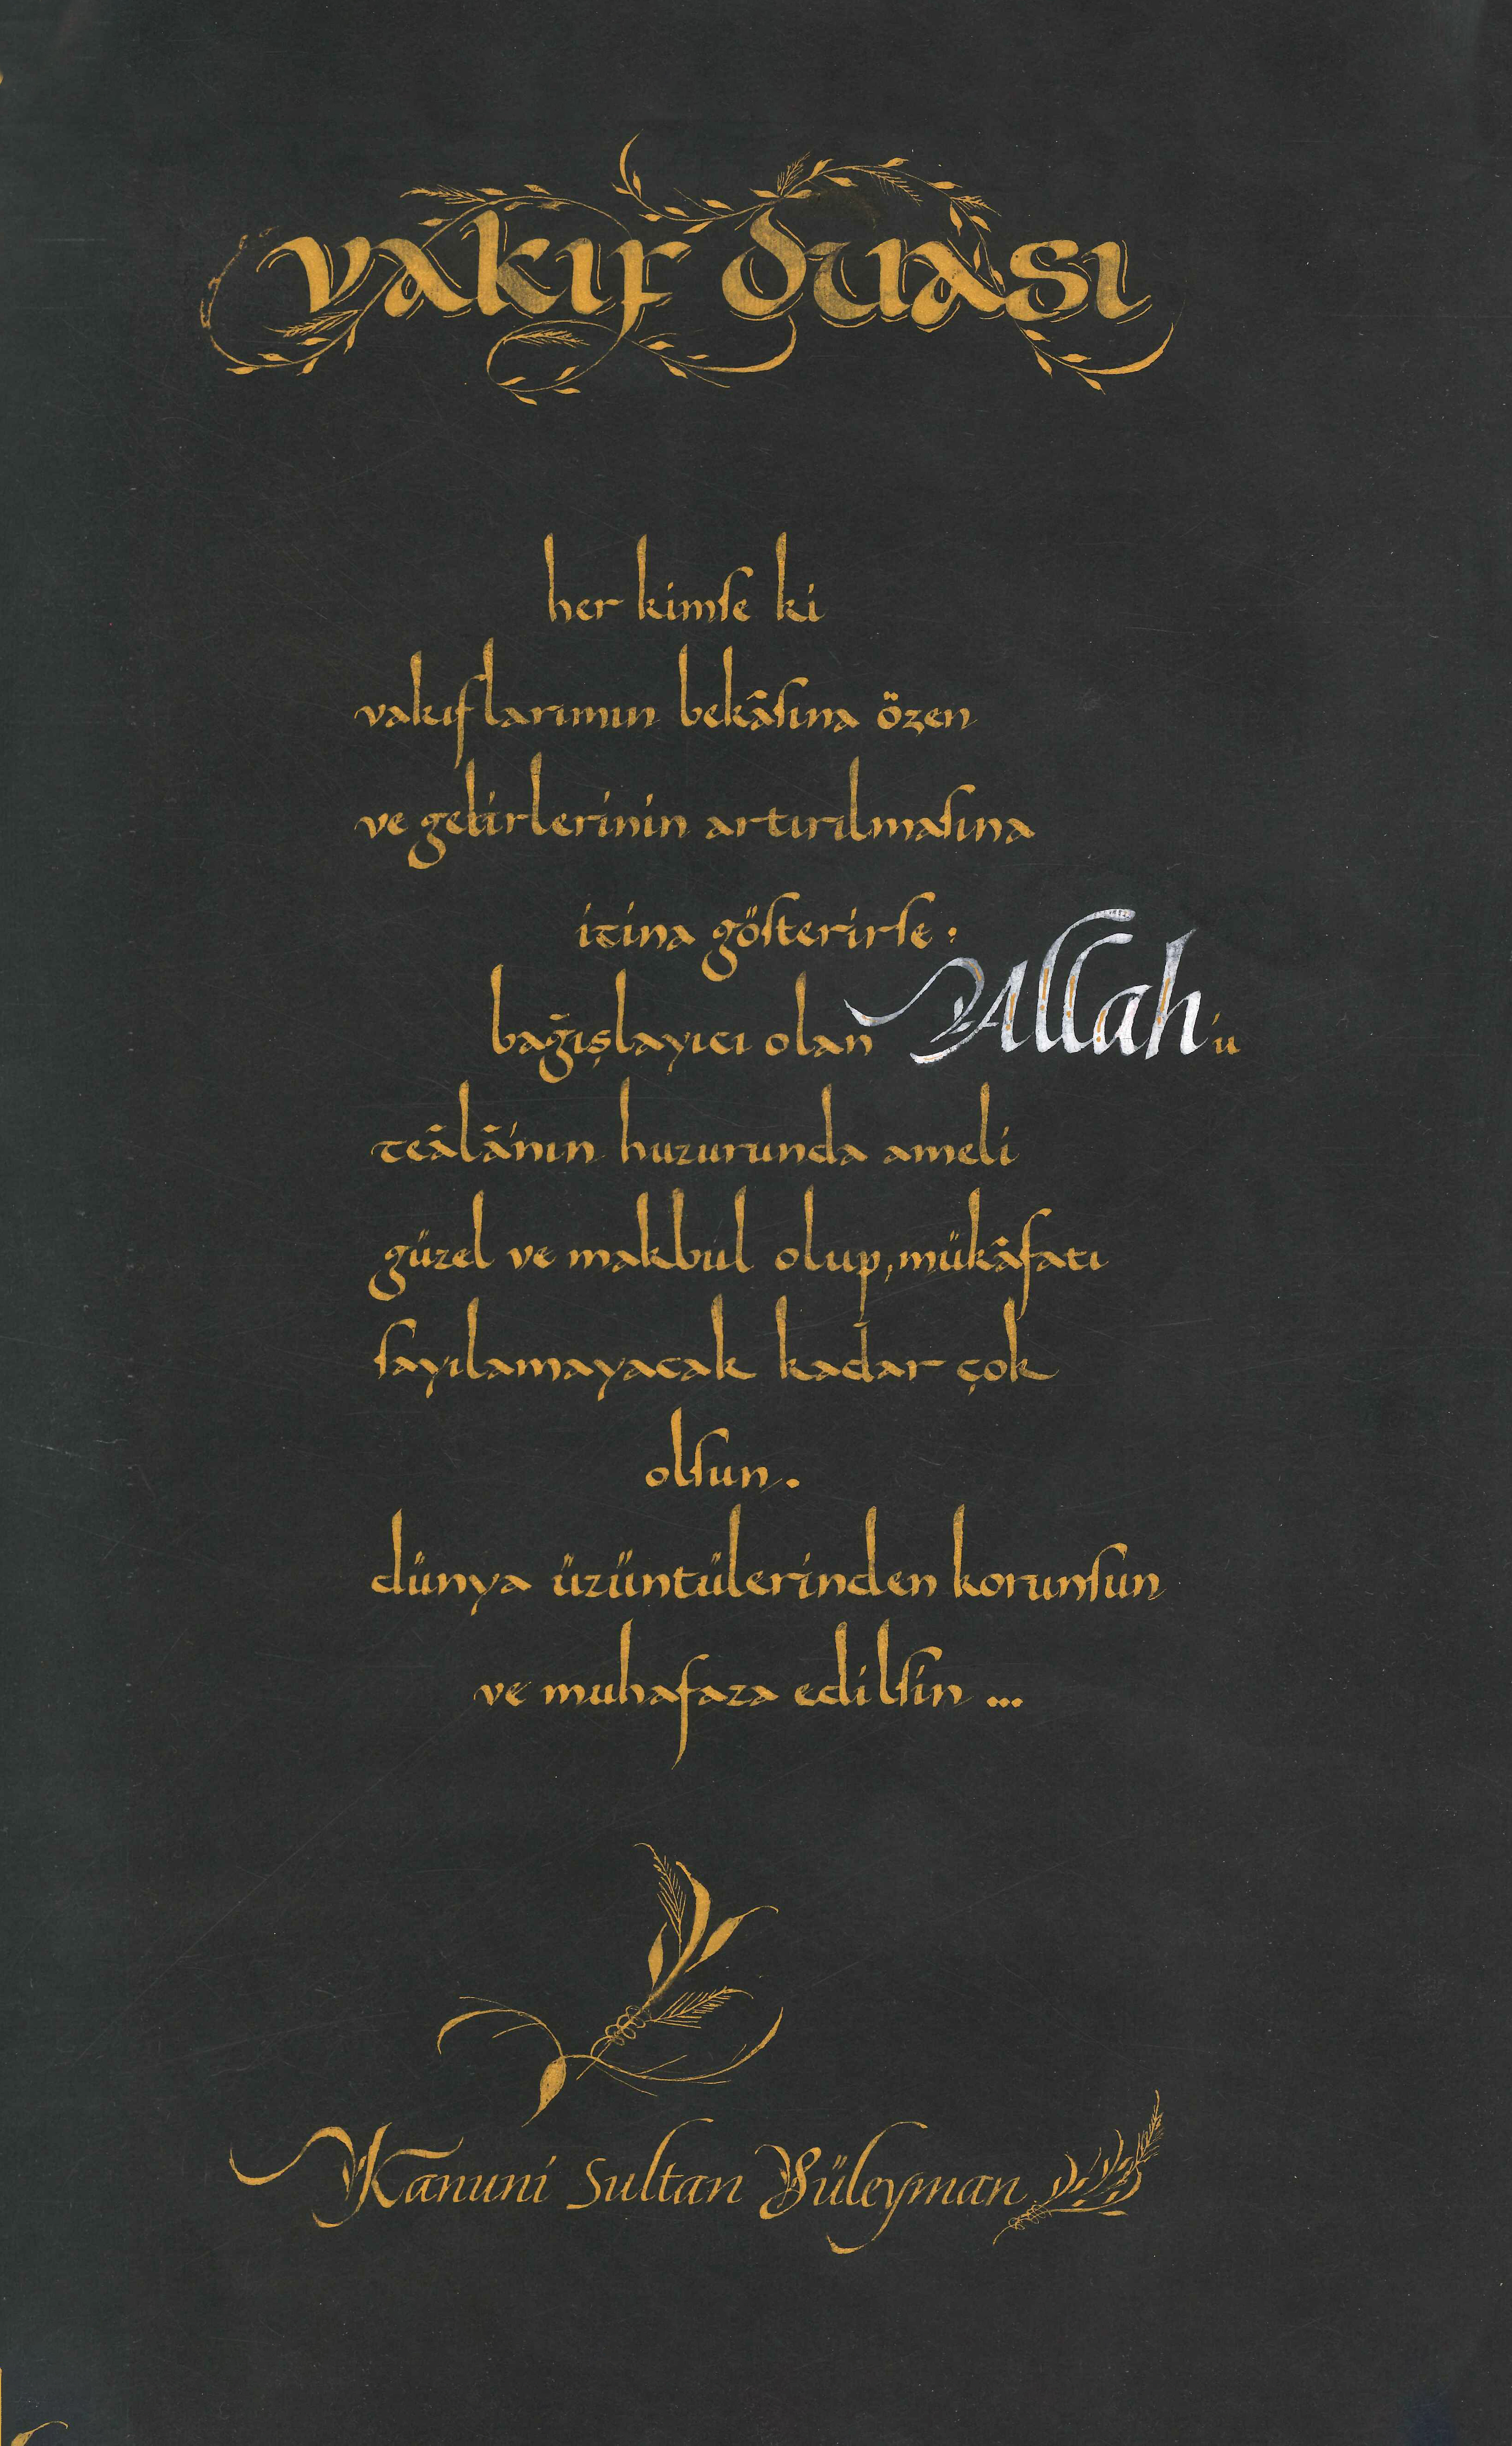 vakıf duası
her kimse ki
vakıflarımın bekâsına özen
ve gelirlerinin artırılmasına
itina gösterirse:
bağışlayıcı olan Allah'ü
teâlâ'nın huzurunda ameli
güzel ve makbul olup, mükâfatı
sayılamayacak kadar çok
olsun.
dünya üzüntülerinden korunsun
ve muhafaza edilsin ...
Kanuni Sultan Süleyman